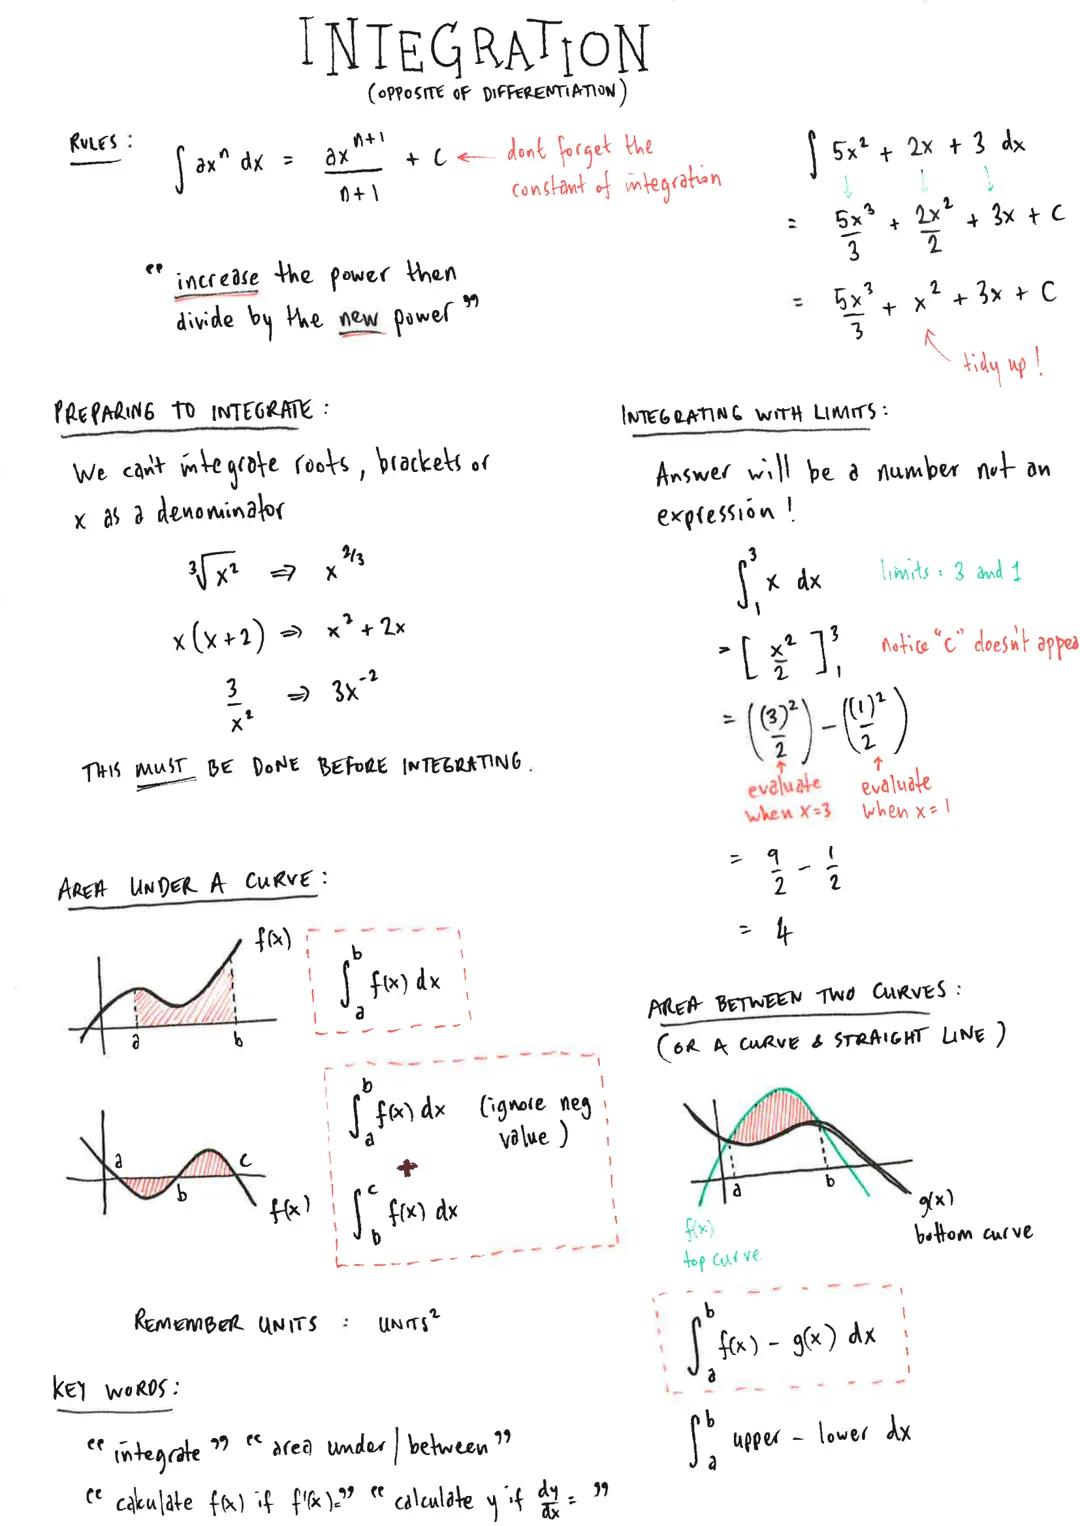 INTEGRATION
(OPPOSITE OF DIFFERENTIATION)
RULES:
∫ ax^n dx = ax^(n+1)/(n+1) + C ← dont forget the
constant of integration
"increase the power then
divide by the new power"
∫ 5x² + 2x + 3 dx
= 5x³/3 + 2x²/2 + 3x + C
= 5x³/3 + x² + 3x + C
tidy up!
PREPARING TO INTEGRATE:
We can't integrate roots, brackets or
x as a denominator
³√x² ⇒ x^(2/3)
x(x+2) ⇒ x² + 2x
3/x² ⇒ 3x^-2
THIS MUST BE DONE BEFORE INTEGRATING.
INTEGRATING WITH LIMITS:
Answer will be a number not an
expression!
∫₁³ x dx limits: 3 and 1
= [x²/2]₁³ notice "C" doesn't appea
= ((3)²/2) - ((1)²/2)
↑ ↑
evaluate evaluate
when x=3 when x=1
= 9/2 - 1/2
= 4
AREA UNDER A CURVE:
f(x)
a b
∫ₐᵇ f(x) dx
a b c
f(x)
∫ₐᵇ f(x) dx (ignore neg
value)
+
∫_b^c f(x) dx
REMEMBER UNITS : UNITS²
AREA BETWEEN TWO CURVES:
(OR A CURVE & STRAIGHT LINE)
a b
f(x)
top curve
g(x)
bottom curve
∫ₐᵇ f(x) - g(x) dx
∫ₐᵇ upper - lower dx
KEY WORDS:
"integrate" "area under/between"
"calculate f(x) if f'(x)=" "calculate y if dy/dx = "